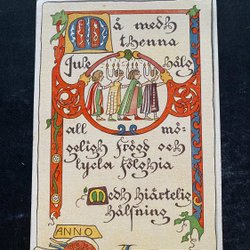 Må medh
thenna
Jule hälg
all mö-
geligh frögd och
lycka fölghia
Medh hiärtelig
hälsning
ANNO